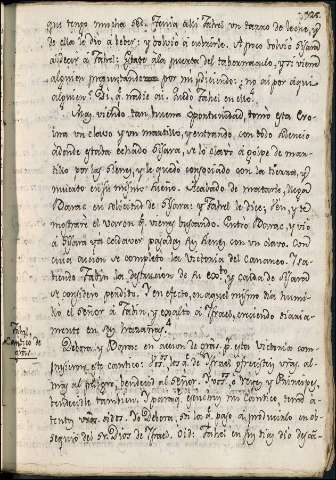 que tengo mucha sed. Tenia alli Jahel un tarro de leche, y
de ella le dio a beber; y bolvio a cubrirle. A poco bolvio Sisara
a decir a Jahel: Estate a la puerta del tabernaculo, y si viene
alguien preguntando por mi diciendo: no ai por aqui
alguien? Di, q. nadie ai. Quedo Jahel en ello.
Mas viendo tan buena oportunidad, tomó esta Ero-
ina un clavo y un martillo, y entrando, con todo silencio
adonde estaba echado Sisara, se lo clavó a golpe de mar-
tillo por las sienes, y le quedó con la tierra, y
muerto en su mismo sueño. Acabado de matarlo, llega
Barac en solicitud de Sisara: y Jahel le dice; Ven, y te
mostraré el varon q. vienes buscando. Entró Barac, y vio
a Sisara ya cadaver pasadas sus sienes con un clavo. Con
cuia accion se completo la Victoria del Cananeo. I sa-
biendo Jabin la destruccion de su exto, y caida de Sisara
se consideró perdido. I en efecto, en aquel mismo dia humi-
lló el Señor a Jabin, y exaltó a Israel, creciendo diaria-
mente en sus hazañas.
Cantico de
Debora, y Barac en accion de gras. p. esta Victoria com-
pusieron este cantico: los q. de Israel
al peligro, bendecid al Señor. O Reyes, y Principes,
tambien. mi Cantico,
oidos. Io Debora, soi la q. paso a producirlo en ob-
sequio del Sr. Dios de Israel. Oid: Jahel en sus dias